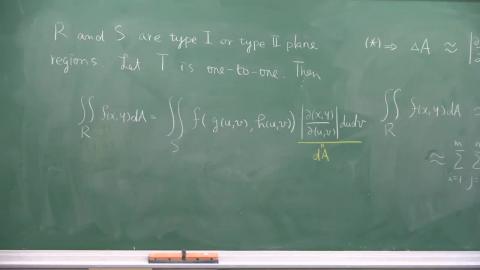 R and S are type I or type II plane
regions. Let T is one-to-one. Then
∬_R f(x,y)dA = ∬_S f(g(u,v), h(u,v)) |∂(x,y)/∂(u,v)| dudv
dA
(*) ⇒ ΔA ≈ |∂
∬_R f(x,y)dA =
≈ Σ_{i=1}^{m} Σ_{j=